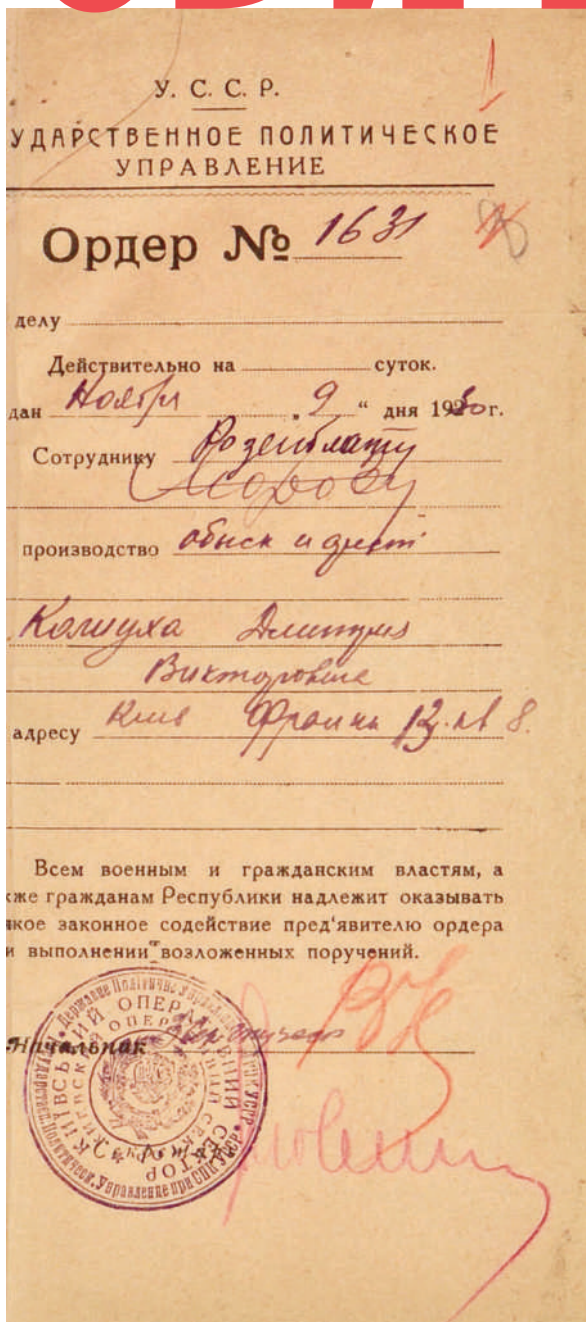 У. С. С. Р.
УДАРСТВЕННОЕ ПОЛИТИЧЕСКОЕ
УПРАВЛЕНИЕ
Ордер № 1631
делу
Действительно на суток.
дан Ноября „ 9 “ дня 1930 г.
Сотруднику Розенблату
производство обыск и арест
Дмитрия
Викторовича
адресу Киев 12 кв 8.
Всем военным и гражданским властям, а
кже гражданам Республики надлежит оказывать
якое законное содействие пред'явителю ордера
и выполнении возложенных поручений.
Начальник
КИЇВСЬКИЙ ОПЕРАТИВНИЙ СЕКТОР